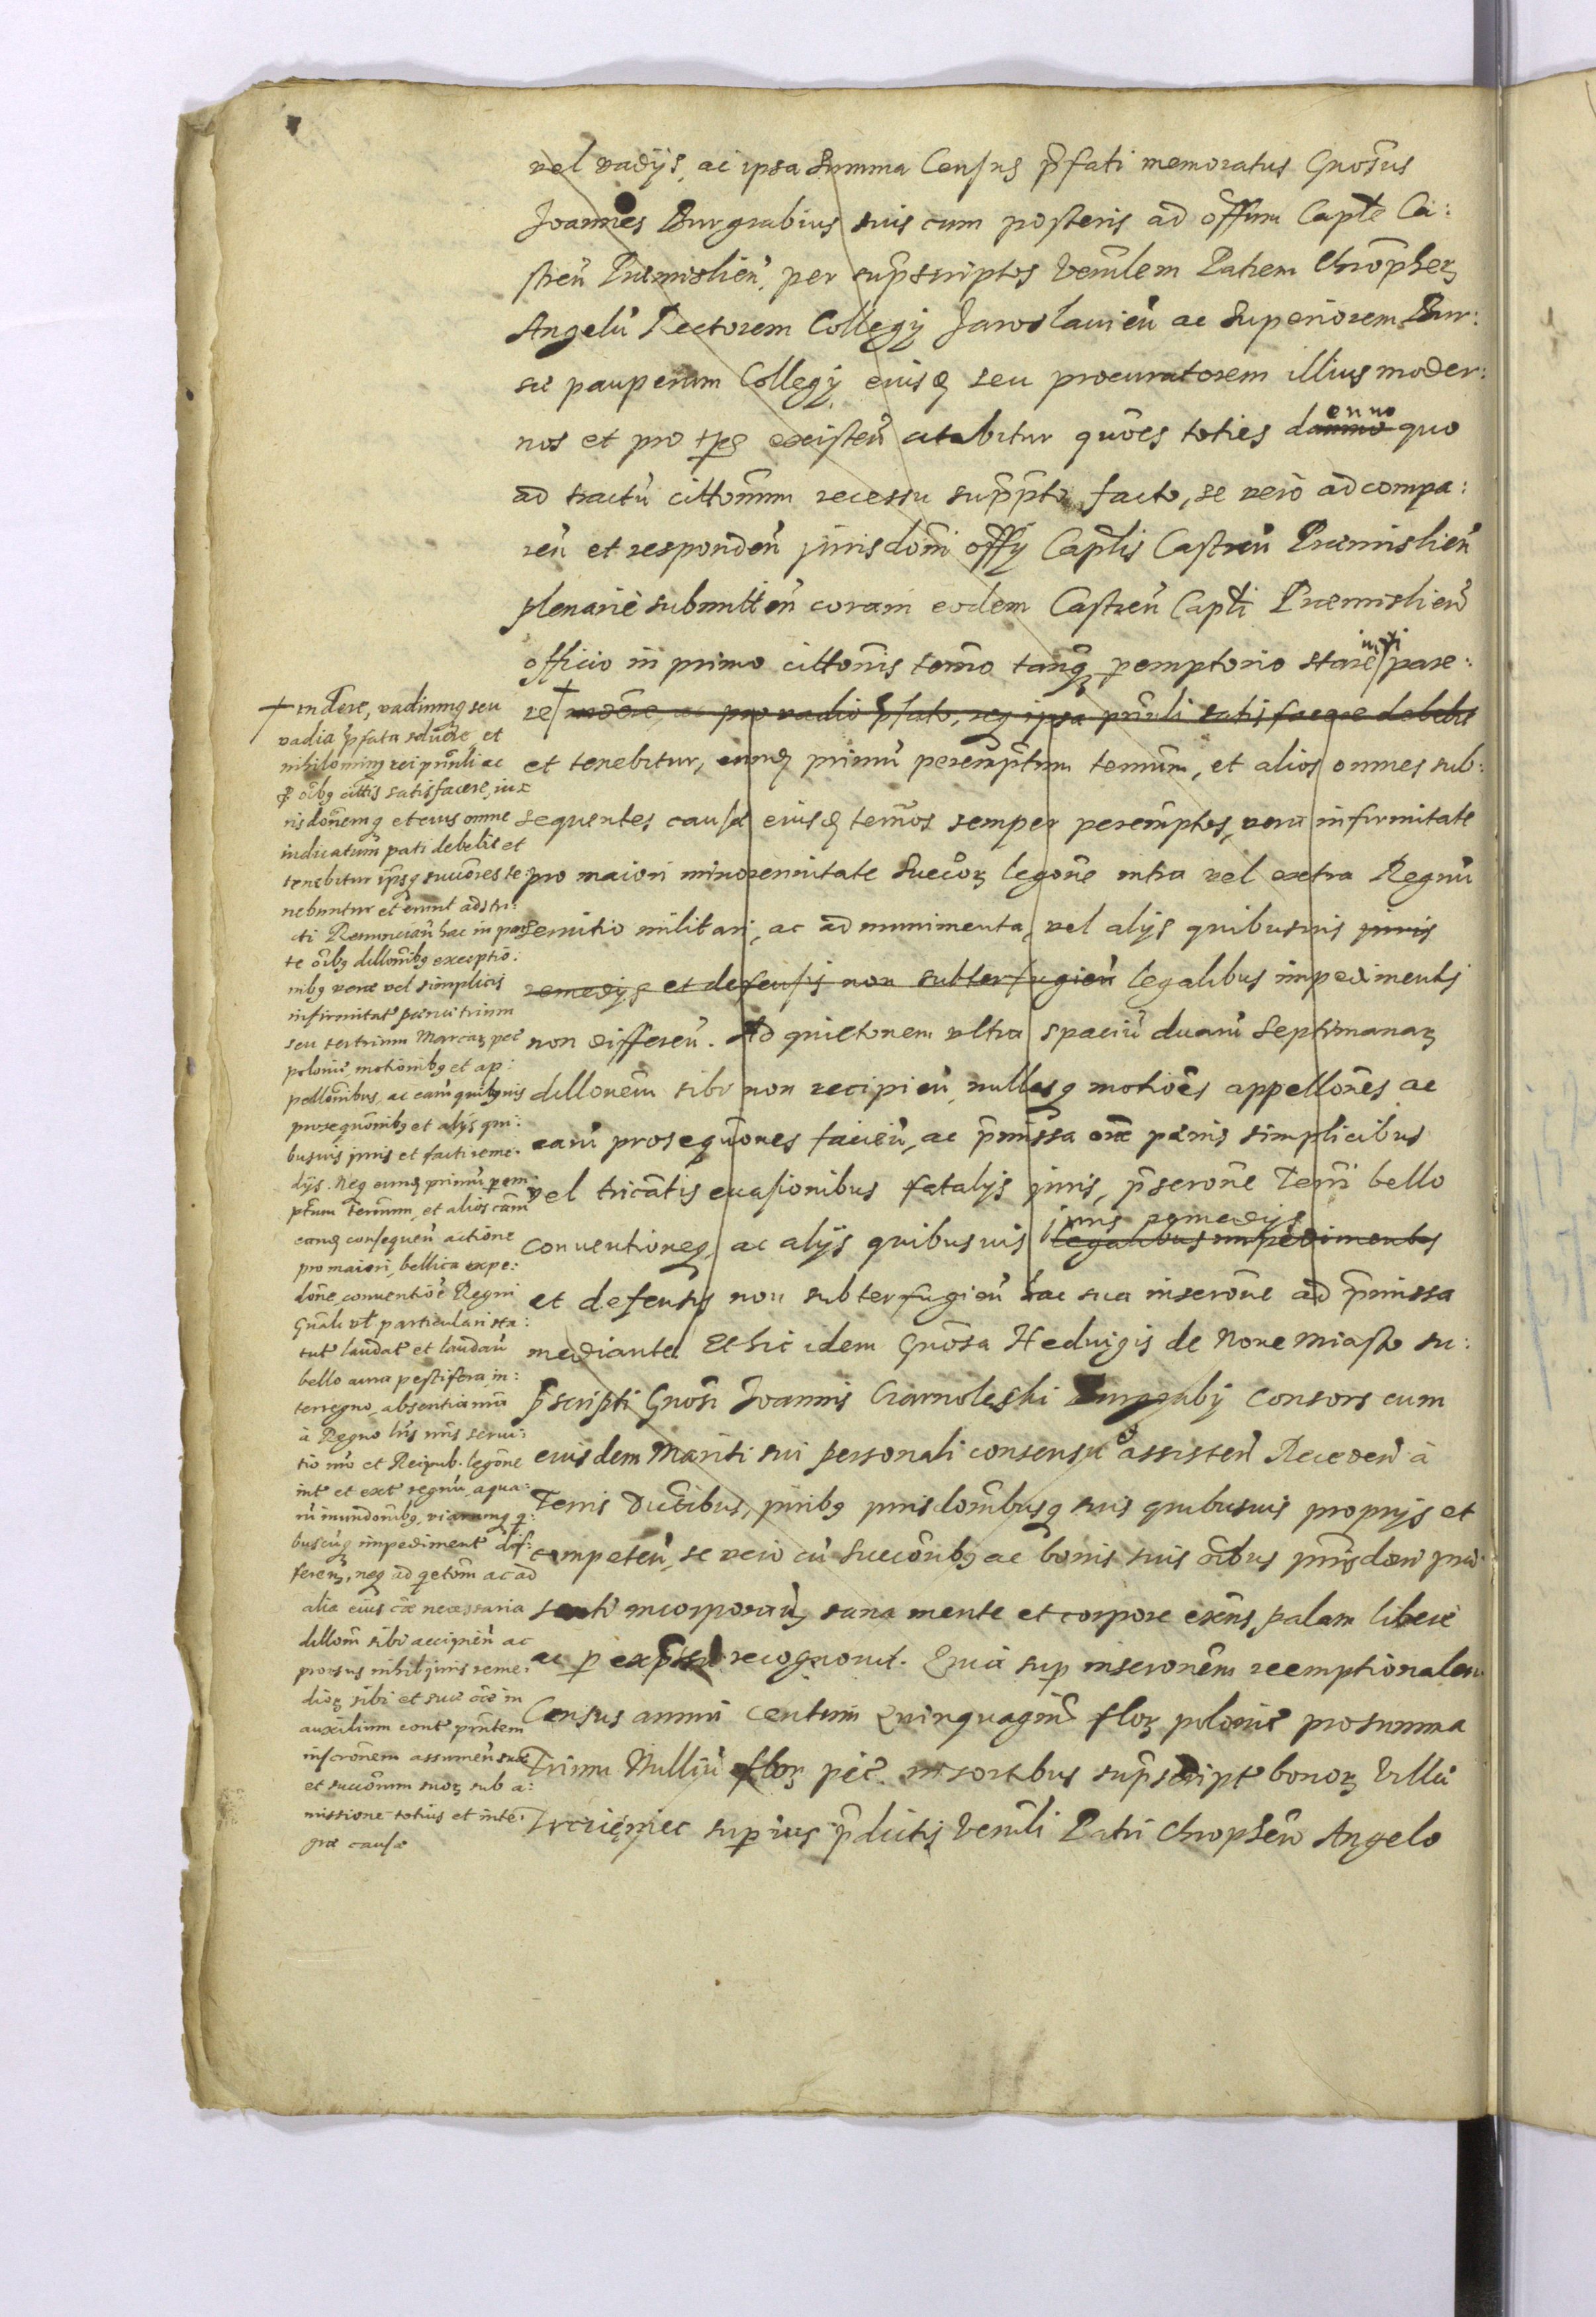 vel vadijs, ac ipsa Summa Census p̃fati memoratus Gnosus
Joannes Burgrabius suis cum posteris ad offum Capte Ca:
streñ Præmislieñ, per sup̃scriptos Veñlem Patrem Chroph̃
Angelũ Rectorem Collegij Jaroslauieñ ac Superiorem Bur:
sæ pauperum Collegij eiusd seu procuratorem illius moder:
nos et pro tpe existeñ citabitur quoẽs toties danno enno quo
ad tractũ cittonum recessu sup̃pto facto, se verò ad compa:
reñ et respondeñ jurisdoñi offij Captlis Castreñ Præmislieñ
plenariè submitteñ coram eodem Castreñ Capti Præmislieñ
officio in primo cittonis termo tanq̃ peremptorio stare juri pare:
re ndere, ac pro vadio p̃fato, req ipsa prñli satisfacere debebit
et tenebitur, eumq primũ peremptum termum, et alios omnes sub:
sequentes causæ eiusd termos semper peremptos, vera infirmitate
pro maiori minorennitate Succor legone intra vel extra Regnũ
seruitio militari, ac ad munimenta, vel alijs quibusuis juris
remedijs et defensis non subterfugieñ legalibus impedimentis
non differeñ. Ad quietonem vltra spaciũ duarũ Septimanar
dillonem sibi non recipieñ, nullasq motiões appellones ac
earũ prosequones facieñ, ac p̃missa oñe pænis simplicibus
vel tricatis euasionibus fatalijs juris, p̃serone Terñi bello
conuentioneq, ac alijs quibusuis legalibus impedimentis juris remedijs
et defensis non subterfugieñ hac sua inserone ad p̃missa
mediante. Et hic idem Gnosa Heduigis de Nowe Miasto su:
p̃scripti Gnosi Joannis Czarnoleski Burgrabij consors cum
eiusdem Mariti sui personali consensu assisteñ Recedeñ à
Terris Ductibus, juribq jurisdonibusq suis quibusuis proprijs et
competeñ, se verò cũ Succoribq ac bonis suis oĩbus jurisdoñi præ:
senti incorporañ, sana mente et corpore exẽns, palam liberè
ac p expressũ recognouit. Quia sup inseronem reemptionalem
Census annui centum Quinquaginta flor polonic pro summa
Trium Milliũ flor pec in sortibus sup̃script bonor Villa
Trcieniec superius p̃dictis Veñli Patri Chrophero Angelo
+ ndere, vadiumq seu
vadia p̃fata soluere et
nihilominq rei prñli ac
p oĩbq cittis satisfacere, ju
risdonemq et eius omne
iudicatum pati debebit et
tenebitur ipsiq succores te:
nebuntur et erunt adstri:
cti Renunciañ hac in par:
te oĩbq dillonibq exceptio:
nibq veræ vel simplicis
infirmitat pænis trium
seu sex trium Marcar pec
polonic, motionibq et ap:
pellonibus, ac earũ quibusuis
prosequonibq et alijs qui:
busuis juris et facti reme:
dijs. Neq eumq primũ pem
ptum Termum, et alios cam
eamq consequeñ actione
pro maiori, bellica expe:
done, conuentiõe Regni
Gnali vt particulari sta:
tut laudat et laudañ
bello aura pestifera, in:
terregno, absentia nra
à Regno lris nris serui:
tio nro et Reipub. legone
int et ext regnũ, aqua:
rũ inundonibq, viarumq q:
buscuq impediment dif:
fereñ, neq ad qetom ac ad
alia eius cæ necessaria
dillom sibi accipieñ ac
prorsus nihil juris reme:
dior sibi et suæ cæ in
auxilium cont prñtem
inscronem assumeñ suæ
et succorum suor sub a:
missione totius et inte:
græ causæ